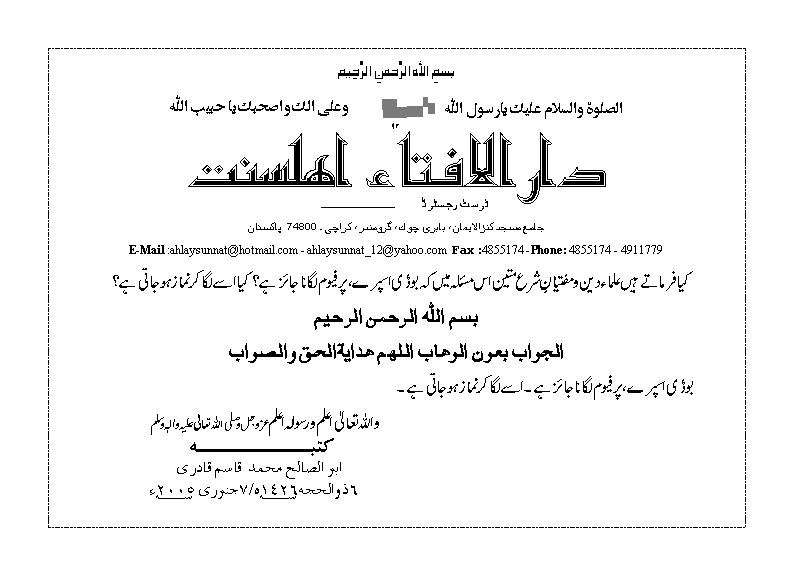 بسم اللہ الرحمن الرحیم
الصلوۃ والسلام علیك یارسول اللہ وعلی الك واصحبك یا حبیب اللہ
۹۲
دار الافتاء اهلسنت
ٹرسٹ رجسٹرڈ
جامع مسجد کنزالایمان، بابری چوك، گرومندر، کراچی ۔ 74800 پاکستان
E-Mail :ahlaysunnat@hotmail.com - ahlaysunnat_12@yahoo.com Fax :4855174 -Phone: 4855174 - 4911779
کیا فرماتے ہیں علماء دین و مفتیان شرع متین اس مسئلہ میں کہ بوڈی اسپرے، پرفیوم لگانا جائز ہے؟ کیا اسے لگا کر نماز ہو جاتی ہے؟
بسم اللہ الرحمن الرحیم
الجواب بعون الوهاب اللهم هدایة الحق والصواب
بوڈی اسپرے، پرفیوم لگانا جائز ہے ۔ اسے لگا کر نماز ہو جاتی ہے ۔
واللہ تعالیٰ اعلم ورسولہ اعلم عزوجل وصلی اللہ تعالیٰ علیہ والہ وسلم
کتبــــــــــه
ابو الصالح محمد قاسم قادری
٦ ذوالحجه ١٤٢٦ه/٧ جنوری ٢٠٠٥ء